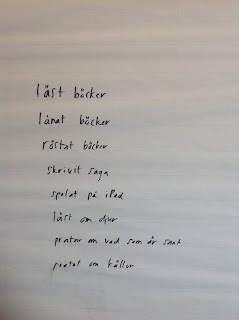 läst böcker
lånat böcker
röstat böcker
skrivit saga
spelat på iPad
läst om djur
pratar om vad som är sant
pratat om källor